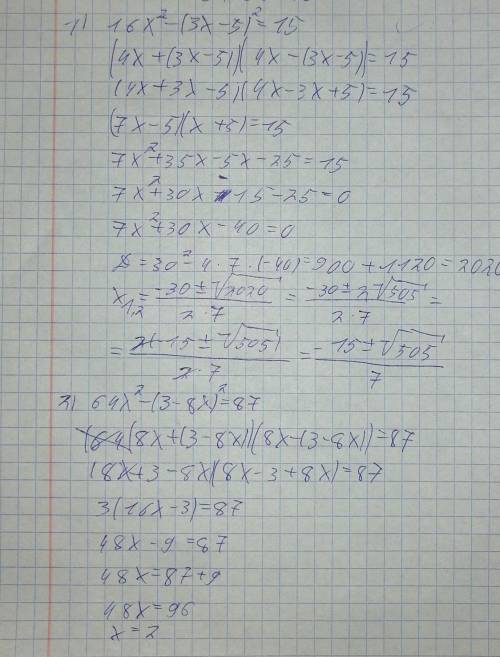 1) 16x²-(3x-5)²=15
(4x+(3x-5))(4x-(3x-5))=15
(4x+3x-5)(4x-3x+5)=15
(7x-5)(x+5)=15
7x²+35x-5x-25=15
7x²+30x-15-25=0
7x²+30x-40=0
D=30²-4·7·(-40)=900+1120=2020
x₁,₂=(-30±√2020)/(2·7)=(-30±2√505)/(2·7)=
=(2(-15±√505))/(2·7)=(-15±√505)/7
2) 64x²-(3-8x)²=87
(8x+(3-8x))(8x-(3-8x))=87
(8x+3-8x)(8x-3+8x)=87
3(16x-3)=87
48x-9=87
48x=87+9
48x=96
x=2